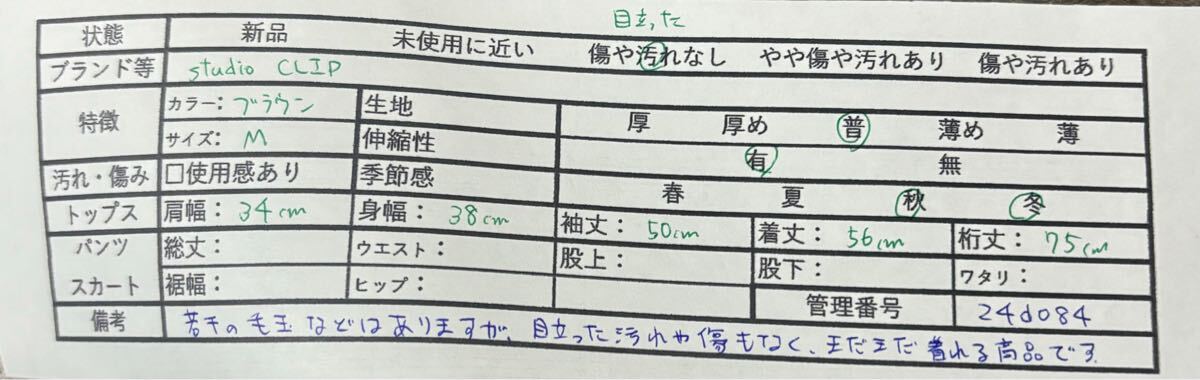 目立った
状態 新品 未使用に近い 傷や汚れなし やや傷や汚れあり 傷や汚れあり
ブランド等 studio CLIP
特徴 カラー：ブラウン 生地 厚 厚め 普 薄め 薄
サイズ：M 伸縮性 有 無
汚れ・傷み □使用感あり 季節感 春 夏 秋 冬
トップス 肩幅：34cm 身幅：38cm 袖丈：50cm 着丈：56cm 裄丈：75cm
パンツ 総丈： ウエスト： 股上： 股下： ワタリ：
スカート 裾幅： ヒップ： 管理番号 24d084
備考 若干の毛玉などはありますが、目立った汚れや傷もなく、まだまだ着れる商品です